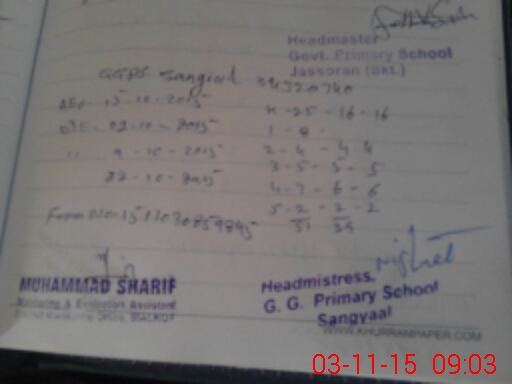 Headmaster
Govt. Primary School
Jassoran (Skt.)
GGPS Sangial 34320740
AEO- 15-10-2015
K-25-16-16
DTE- 02-10-2015
1-8-
" 9-10-2015
2-4-4-4
3-5-5-5
22-10-2015
4-7-6-6
5-2-2-2
Form No-
MUHAMMAD SHARIF
Monitoring & Evaluation Assistant
District Monitoring Office, SIALKOT
Headmistress,
G. G. Primary School
Sangyaal
WWW.KHURRAMPAPER.COM
03-11-15 09:03